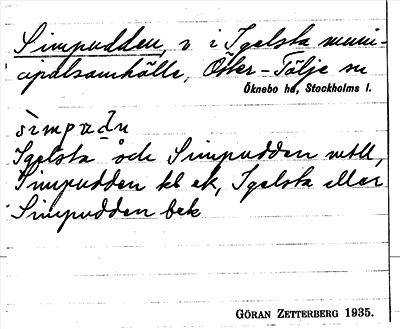 Simpudden, v. i Igelsta muni-
cipalsamhälle, Öster-Tälje sn
Öknebo hd, Stockholms l.
Igelsta och Simpudden
Simpudden kl ek, Igelsta eller
Simpudden bek
GÖRAN ZETTERBERG 1935.